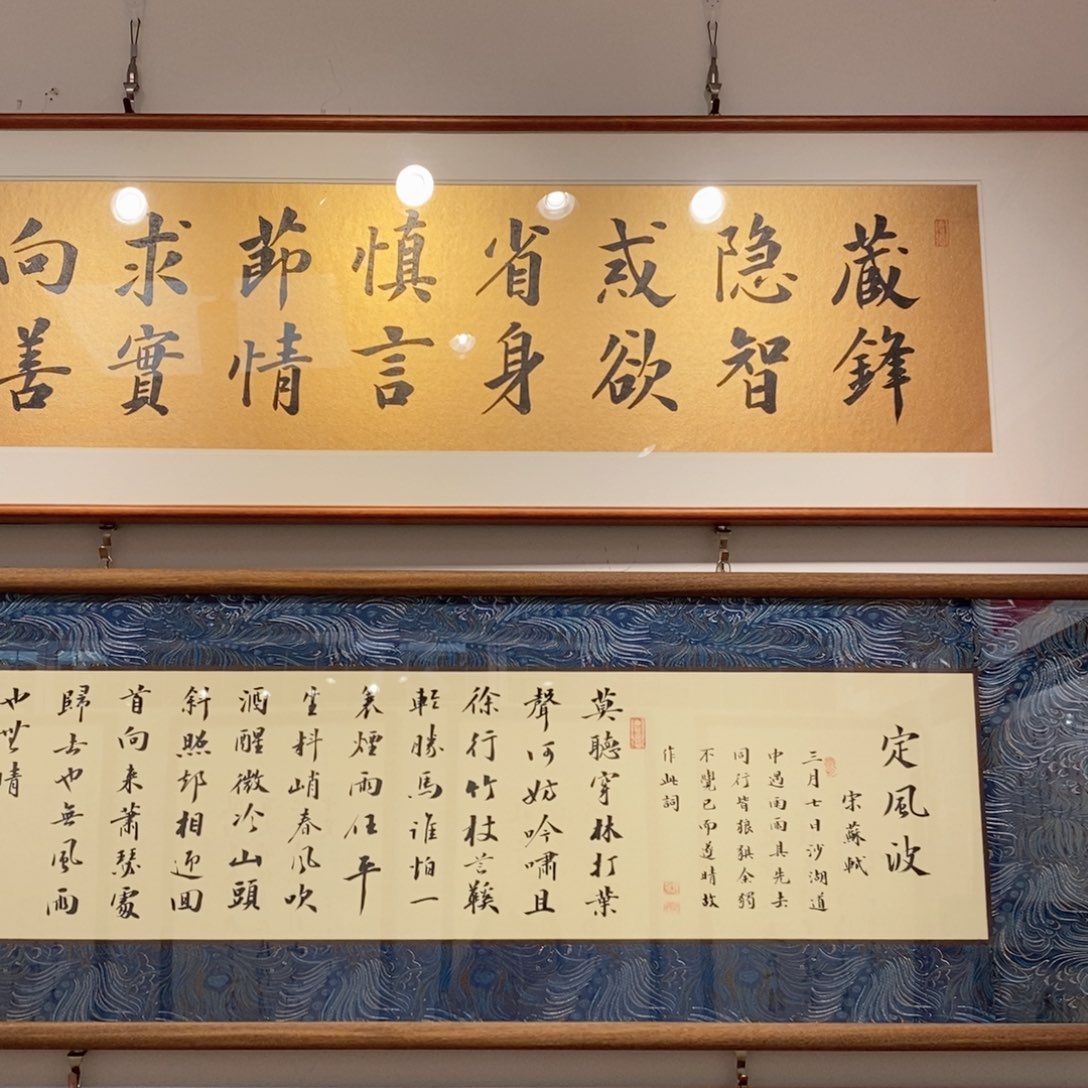 藏鋒
隐智
戒欲
省身
慎言
節情
求實
向善
定風波
宋蘇軾
三月七日沙湖道
中遇雨雨具先去
同行皆狼狽余獨
不覺已而遂晴故
作此詞
莫聽穿林打葉
聲何妨吟嘯且
徐行竹杖芒鞵
輕勝馬誰怕一
蓑煙雨任平
生料峭春風吹
酒醒微冷山頭
斜照却相迎回
首向来蕭瑟處
歸去也無風雨
也無晴